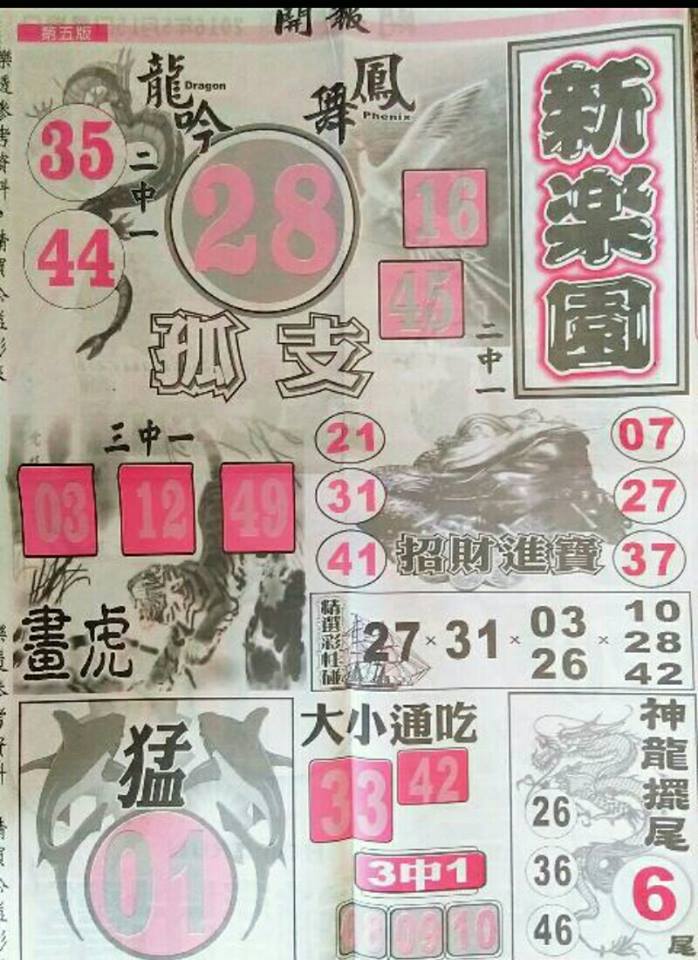 第五版
開報
龍吟
Dragon
鳳舞
Phenix
新楽園
35
44
二中一
28
16
45
二中一
孤支
三中一
03 12 49
畫虎
21
31
41
07
27
37
招財進寶
精選彩柱碰
27×31×03×10
26 28
42
猛
01
大小通吃
33
42
3中1
09 10
神龍擺尾
26
36
46
6
尾